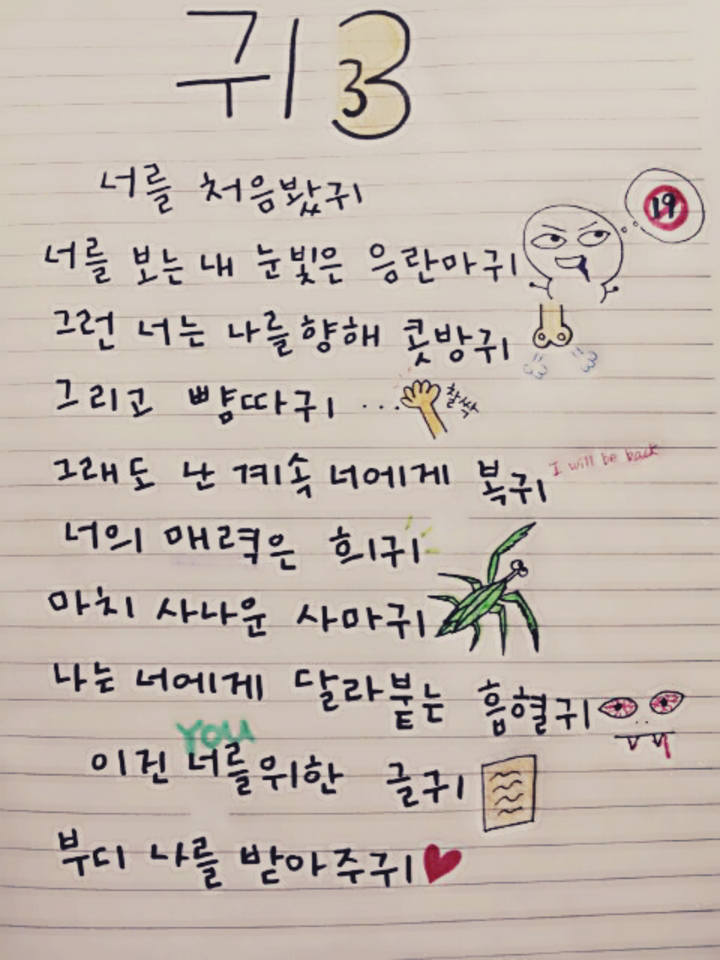 귀 3
너를 처음봤귀
19
너를 보는 내 눈빛은 응란마귀
그런 너는 나를향해 콧방귀
그리고 뺨따귀 ...
찰싹
그래도 난 계속 너에게 복귀
I will be back
너의 매력은 희귀
마치 사나운 사마귀
나는 너에게 달라붙는 흡혈귀
YOU
이건 너를위한 글귀
부디 나를 받아주귀